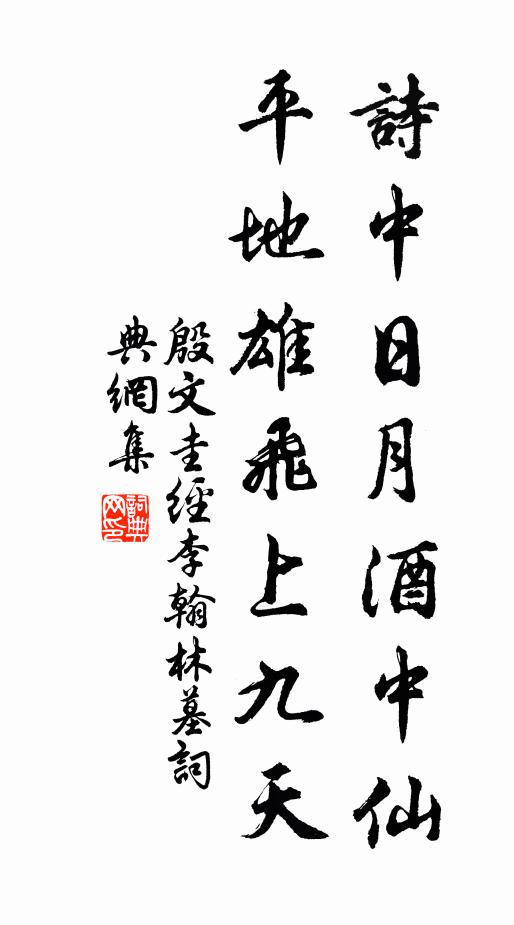 詩中日月酒中仙
平地雄飛上九天
殷文圭經李翰林墓詞
典網集
詞典
网印